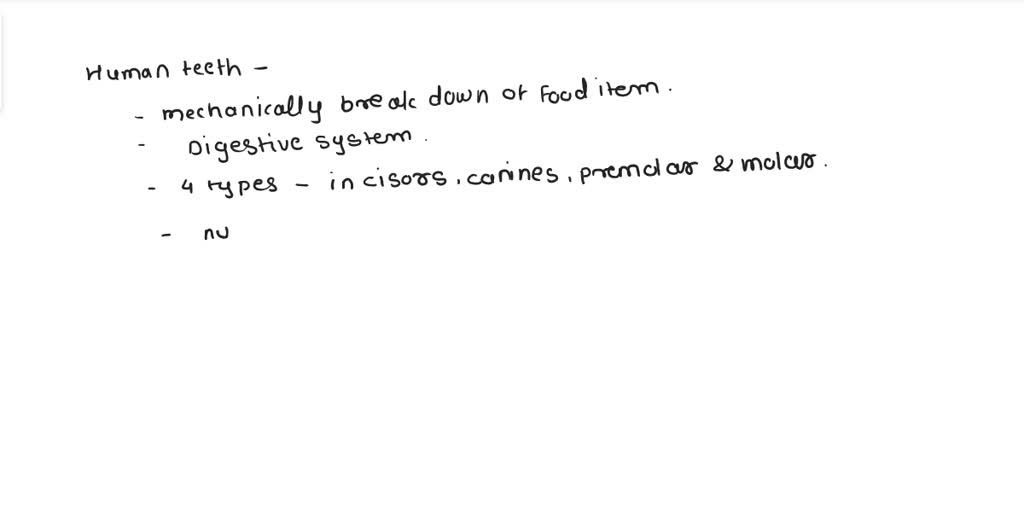 Human teeth -
- mechanically break down of Food item.
- Digestive system.
- 4 types - incisors, canines, premolar & molar.
- nu